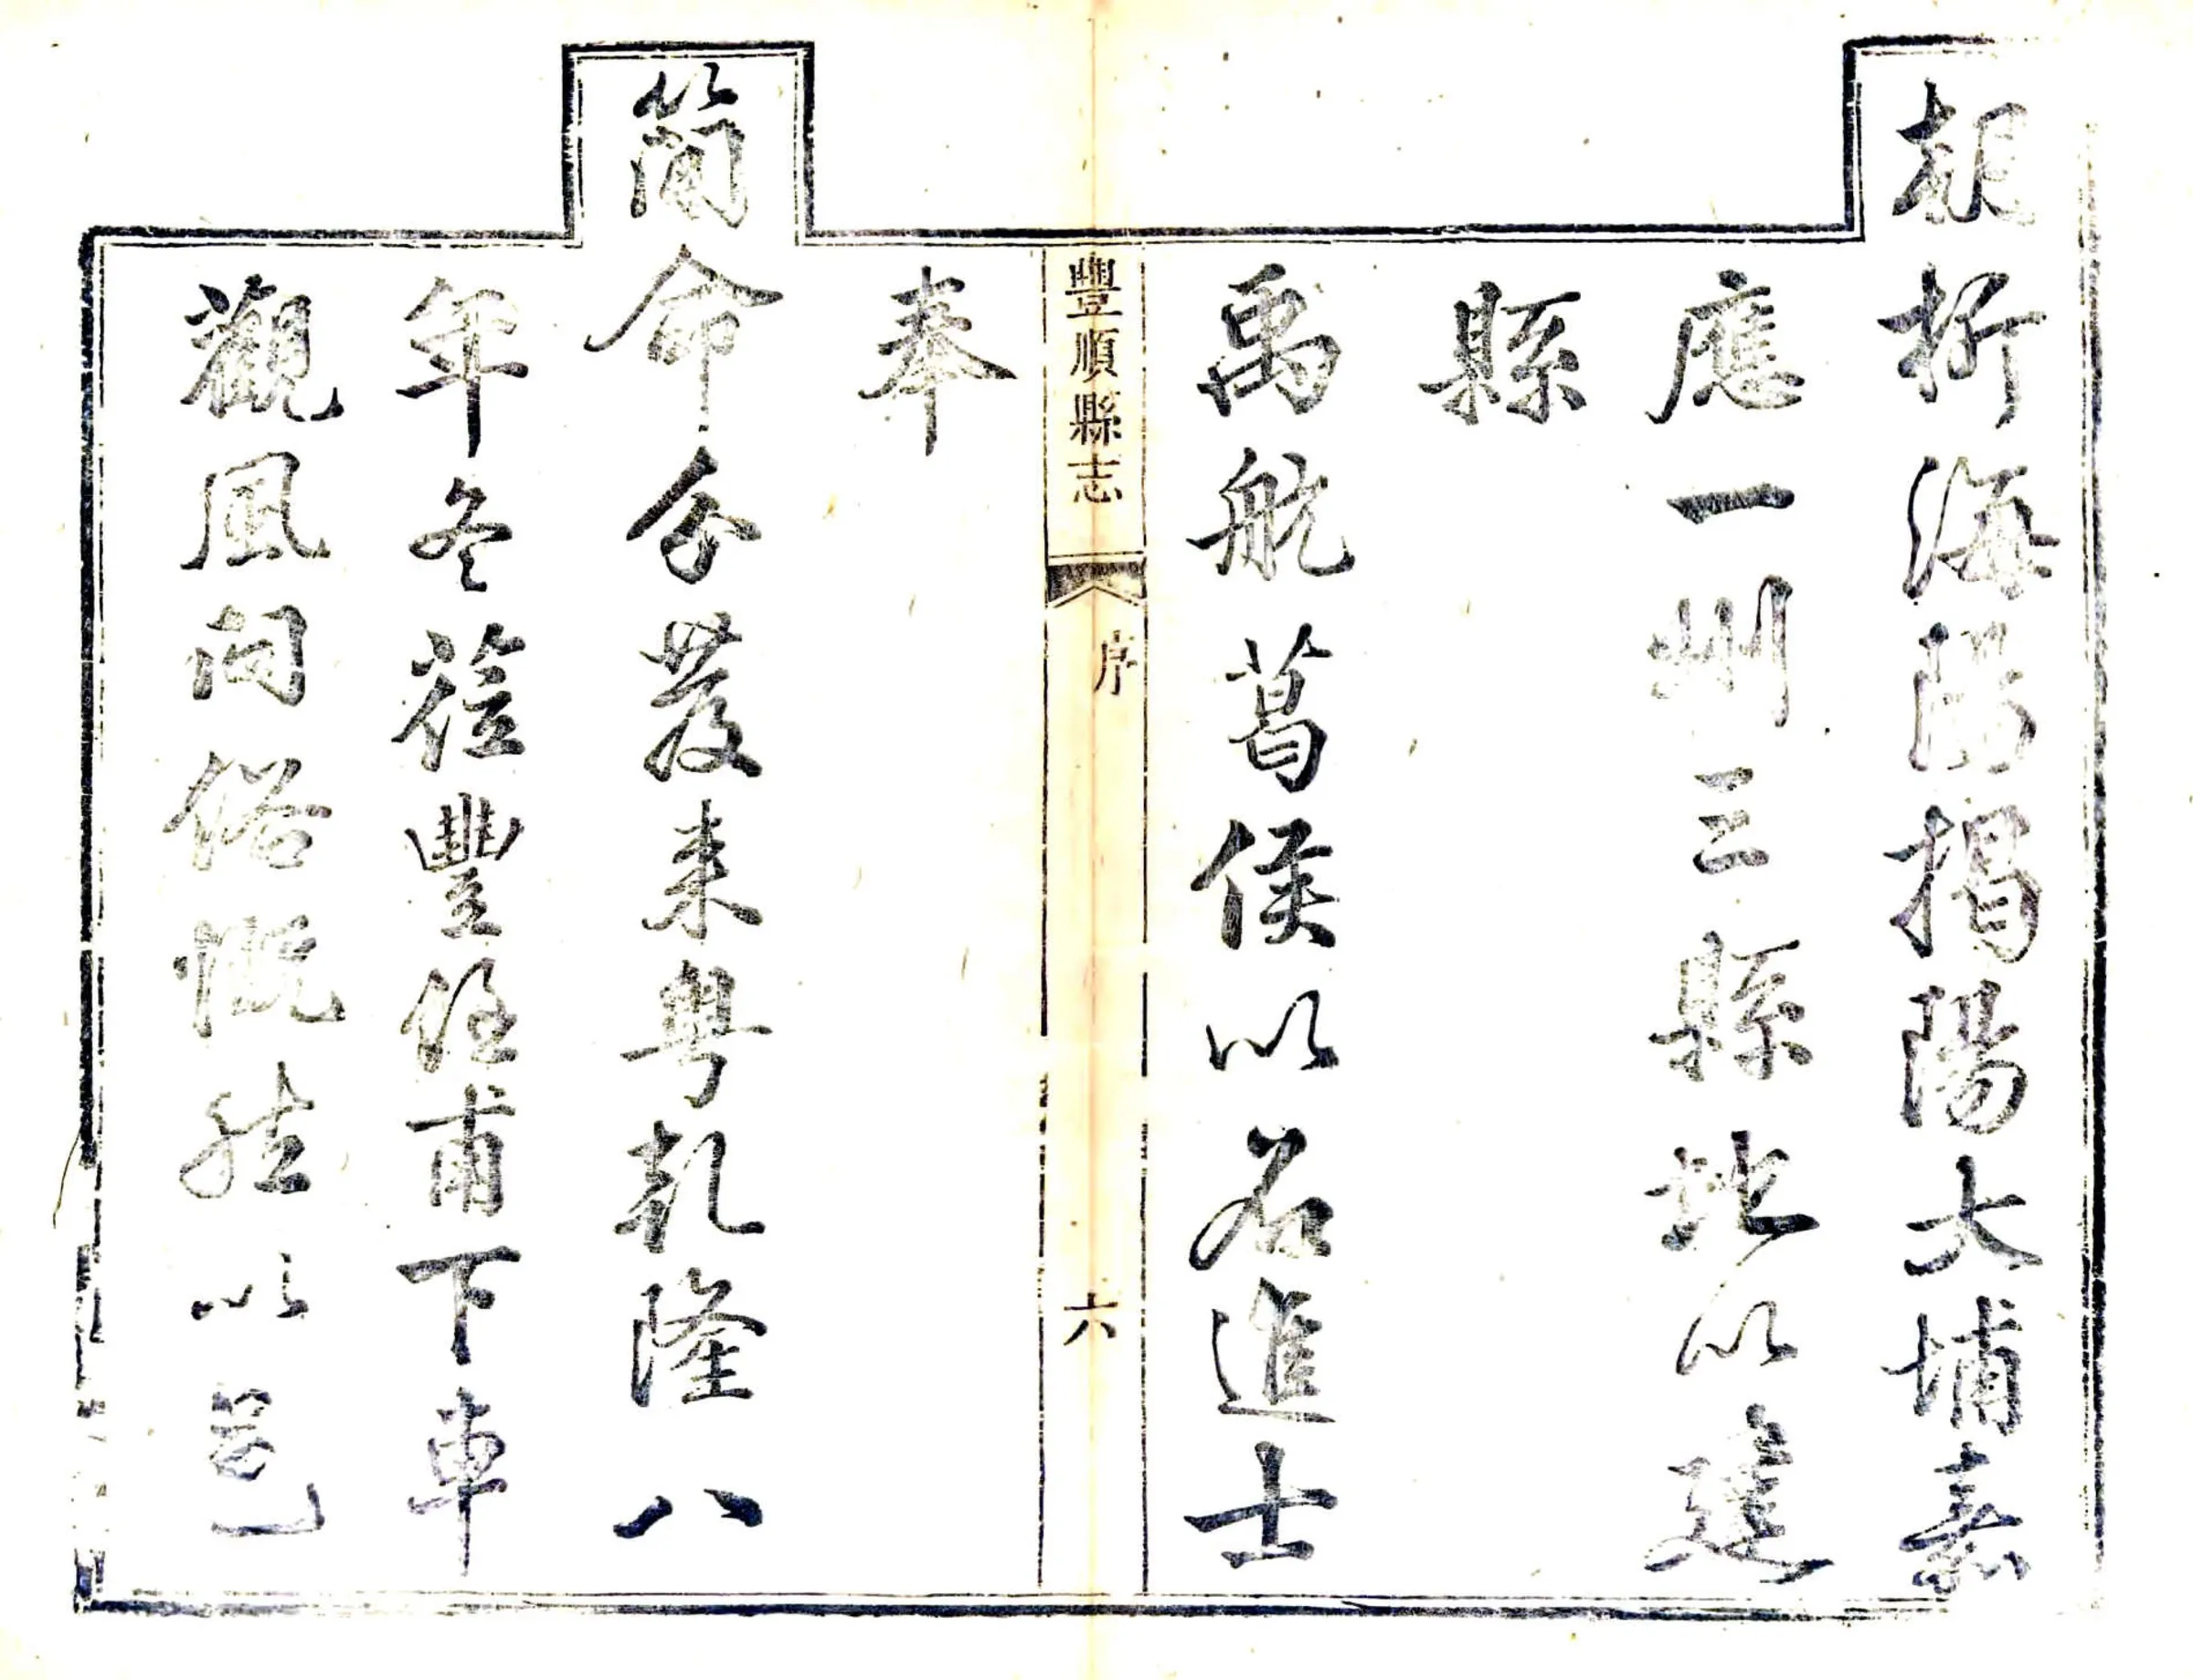 朝析海陽揭陽大埔嘉
應一州三縣地以建
縣
禹航葛侯以名進士
豐順縣志
序
六
奉
簡命分發来粤乾隆八
年冬蒞豐任甫下車
觀風问俗慨然以邑